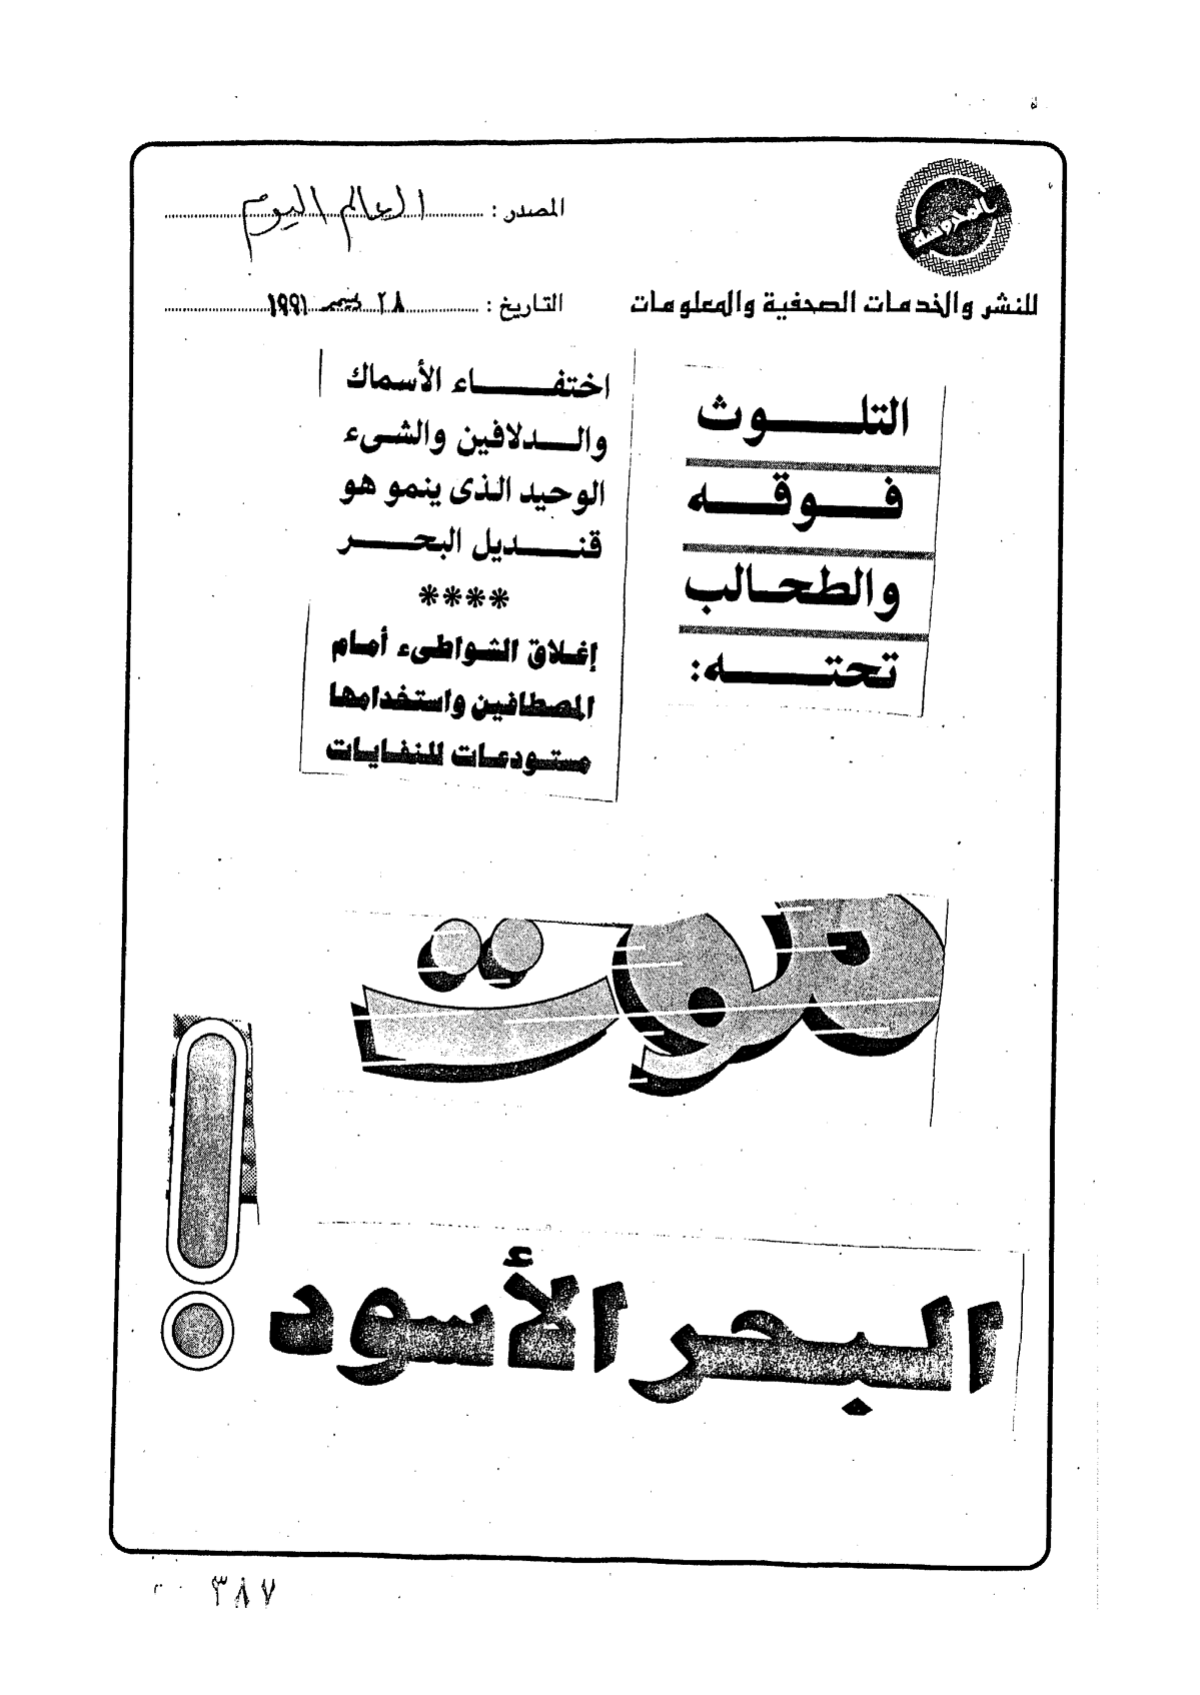 المصدر : العالم اليوم
للنشر والخدمات الصحفية والمعلومات
التاريخ : ٢٨ ديسمبر ١٩٩١
التلوث
فوقه
والطحالب
تحته:
اختفاء الأسماك
والدلافين والشىء
الوحيد الذى ينمو هو
قنديل البحر
****
إغلاق الشواطىء أمام
المصطافين واستخدامها
مستودعات للنفايات
موت
البحر الأسود !
٣٨٧